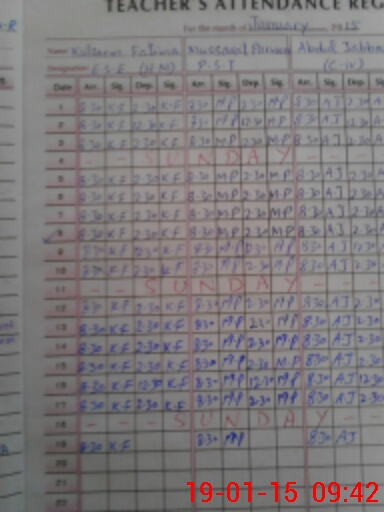 TEACHER'S ATTENDANCE REG
For the month of January 2015
Name Kulsoom Fatima Mussarat Parveen Abdul Jabba
Designation E.S.E (H.M) P.S.T (C-IV)
Date Arr. Sig. Dep. Sig. Arr. Sig. Dep. Sig. Arr. Sig. Dep.
1 8:30 K.F 2:30 K.F 8:30 M.P 2:30 M.P 8:30 AJ 2:30
2 8:30 K.F 12:30 K.F 8:30 M.P 12:30 M.P 8:30 AJ
3 8:30 K.F 2:30 K.F 8:30 M.P 2:30 M.P 8:30 AJ 2:30
4 - - SUNDAY -
5 8:30 K.F 2:30 K.F 8:30 M.P 2:30 M.P 8:30 AJ 2:30
6 8:30 K.F 2:30 K.F 8:30 M.P 2:30 M.P 8:30 AJ 2:30
7 8:30 K.F 2:30 K.F 8:30 M.P 2:30 M.P 8:30 AJ 2:30
8 8:30 K.F 2:30 K.F 8:30 M.P 2:30 M.P 8:30 AJ 2:30
9 8:30 K.F 12:30 K.F 8:30 M.P 12:30 M.P 8:30 AJ 12:30
10 8:30 K.F 2:30 K.F 8:30 M.P 2:30 M.P 8:30 AJ 2:30
11 - - SUNDAY - -
12 8:30 K.F 2:30 K.F 8:30 M.P 2:30 M.P 8:30 AJ 2:30
13 8:30 K.F 2:30 K.F 8:30 M.P 2:30 M.P 8:30 AJ 2:30
14 8:30 K.F 2:30 K.F 8:30 M.P 2:30 M.P 8:30 AJ 2:30
15 8:30 K.F 2:30 K.F 8:30 M.P 2:30 M.P 8:30 AJ 2:30
16 8:30 K.F 12:30 K.F 8:30 M.P 12:30 M.P 8:30 AJ 12:30
17 8:30 K.F 2:30 K.F 8:30 M.P 2:30 M.P 8:30 AJ 2:30
18 - - SUNDAY - -
19 8:30 K.F 8:30 M.P 8:30 AJ
20
21
22
19-01-15 09:42